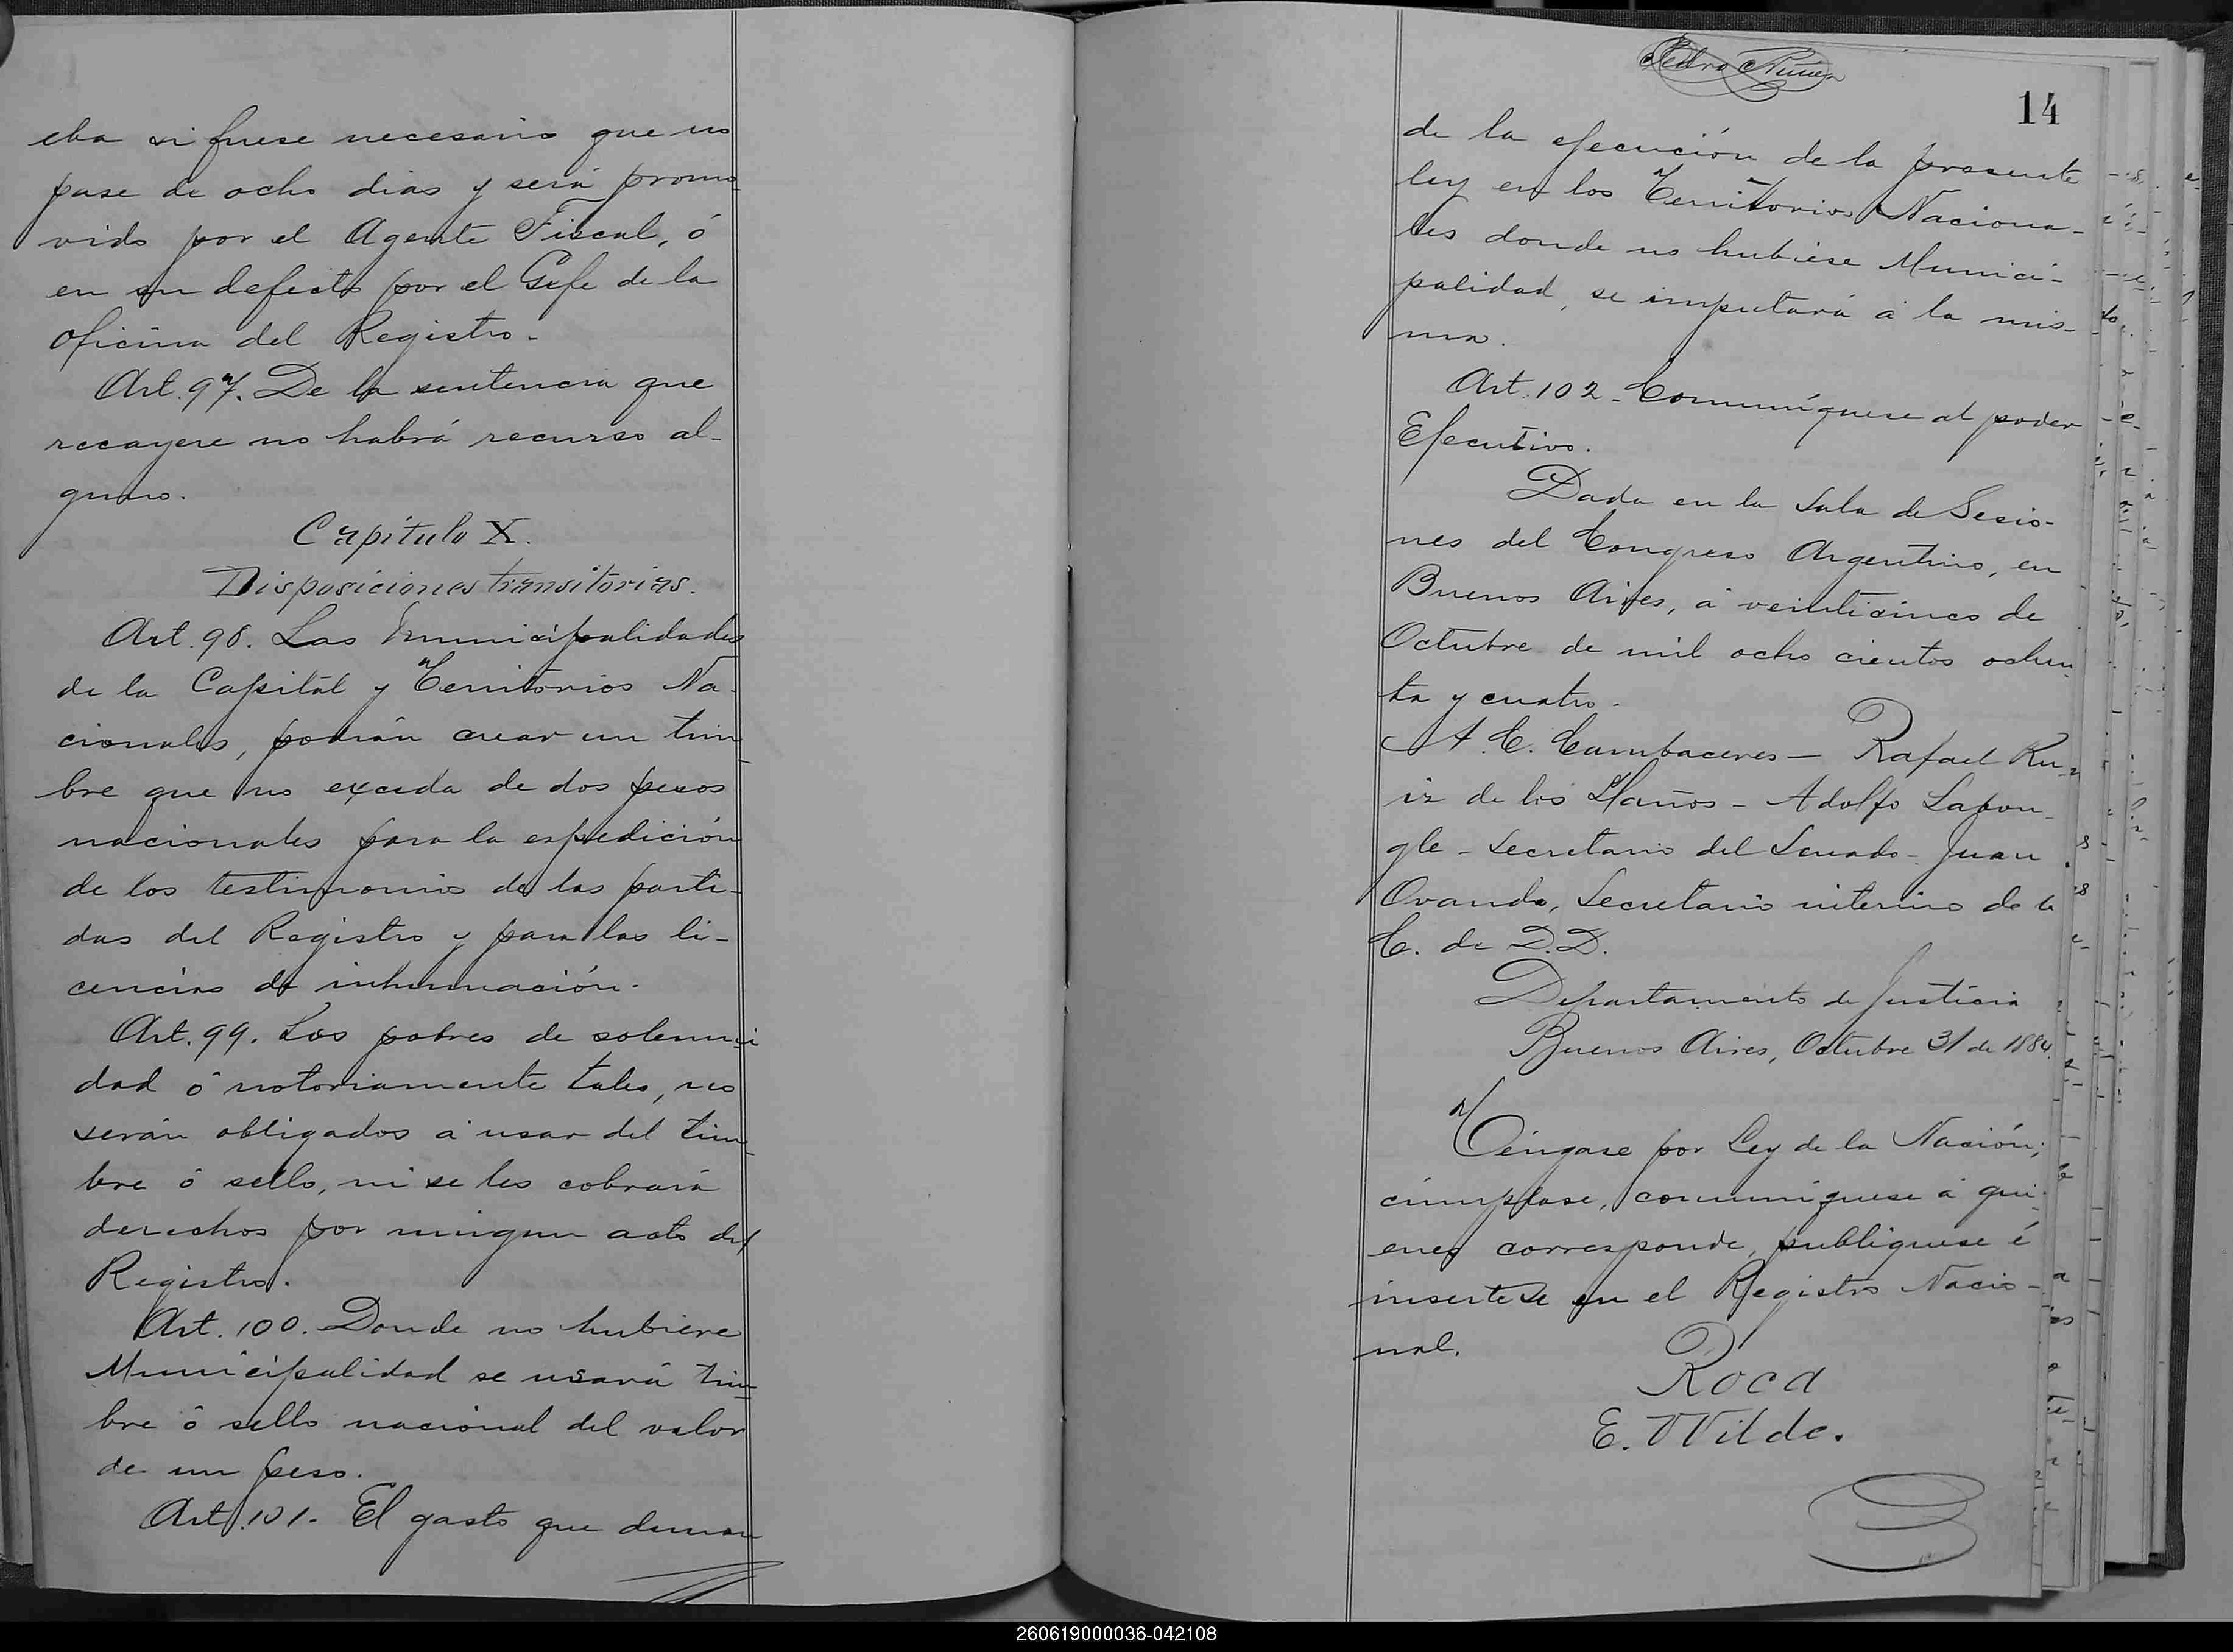 eba si fuese necesario que no
pase de ocho dias y será promo
vido por el Agente Fiscal, ó
en su defecto por el Gefe de la
oficina del Registro.
Art. 97. De la sentencia que
recayere no habrá recurso al-
guno.
Capítulo X.
Disposiciones transitorias.
Art. 98. Las Municipalidades
de la Capital y Territorios Na-
cionales, podrán crear un tim
bre que no exceda de dos pesos
nacionales para la espedición
de los testimonios de las parti-
das del Registro y para las li-
cencias de inhumación.
Art. 99. Los pobres de solemni
dad ó notoriamente tales, no
serán obligados á usar del tim
bre ó sello, ni se les cobrará
derechos por ningun acto del
Registro.
Art. 100. Donde no hubiere
Municipalidad se usará tim-
bre ó sello nacional del valor
de un peso.
Art. 101. El gasto que deman
Pedro Nuñez
14
de la ejecución de la presente
ley en los Territorios Naciona-
les donde no hubiese Munici-
palidad, se imputará á la mis-
ma.
Art. 102. Comuníquese al poder
Ejecutivo.
Dada en la Sala de Sesio-
nes del Congreso Argentino, en
Buenos Aires, á veinticinco de
Octubre de mil ocho cientos ochen
ta y cuatro.
A. C. Cambaceres — Rafael Ru-
iz de los Llaños - Adolfo Labou-
gle - Secretario del Senado - Juan
Ovando, Secretario interino de la
C. de D.D.
Departamento de Justicia
Buenos Aires, Octubre 31 de 1884.
Téngase por Ley de la Nación;
cúmplase, comuníquese á qui-
enes corresponde, publiquese é
insertese en el Registro Nacio-
nal.
Roca
E. Wilde.
260619000036-042108